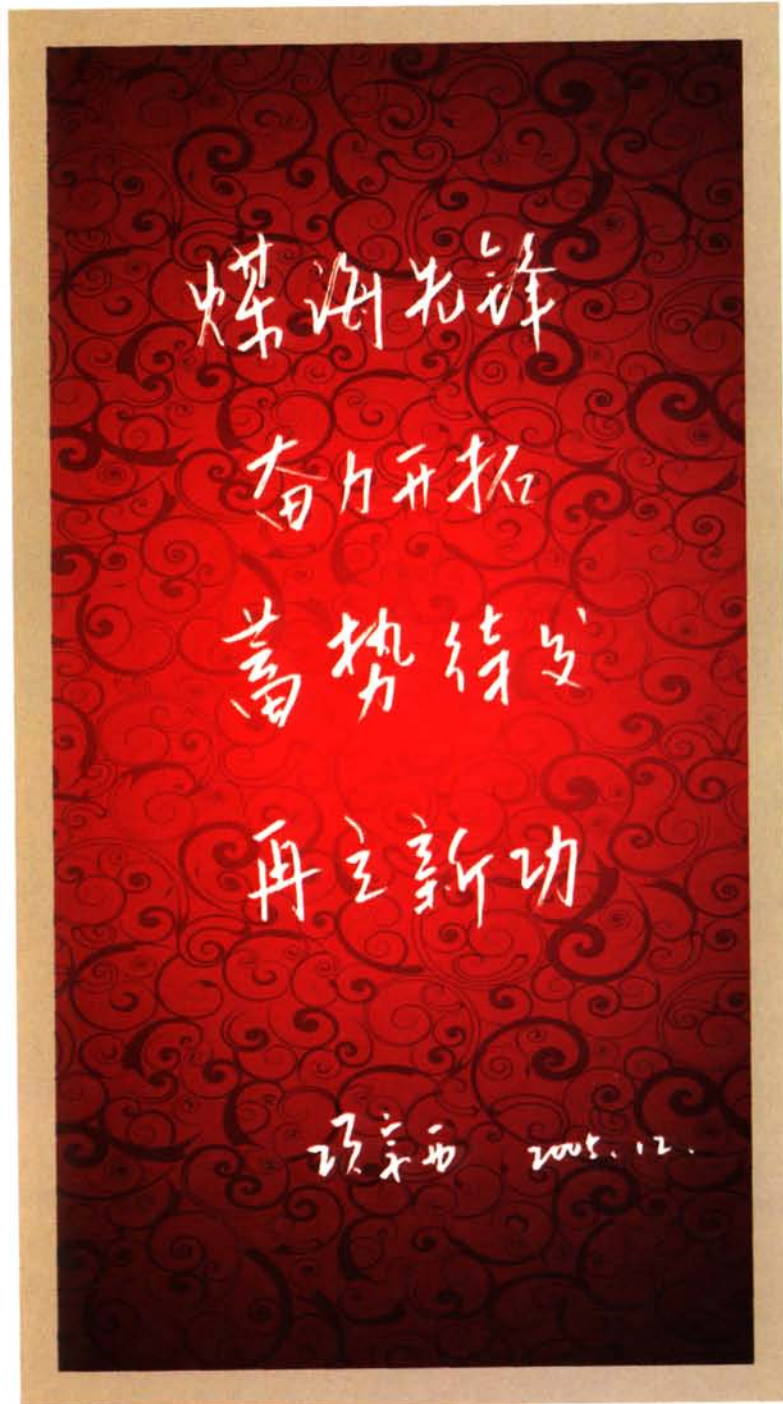 煤海先锋
奋力开拓
蓄势待发
再立新功
项宗西 2005.12.